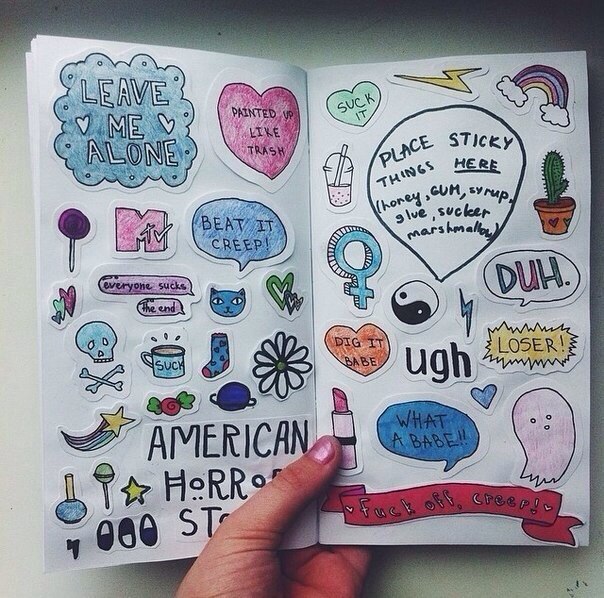 LEAVE
ME
ALONE
PAINTED UP
LIKE
TRASH
MTV
BEAT IT
CREEP!
everyone sucks
the end
SUCK
AMERICAN
HORROR
SUCK
IT
PLACE STICKY
THINGS HERE
(honey, GUM, syrup,
glue, sucker
marshmallow)
DUH.
DIG IT
BABE
ugh
LOSER!
WHAT
A BABE!!
Fuck off, creep!